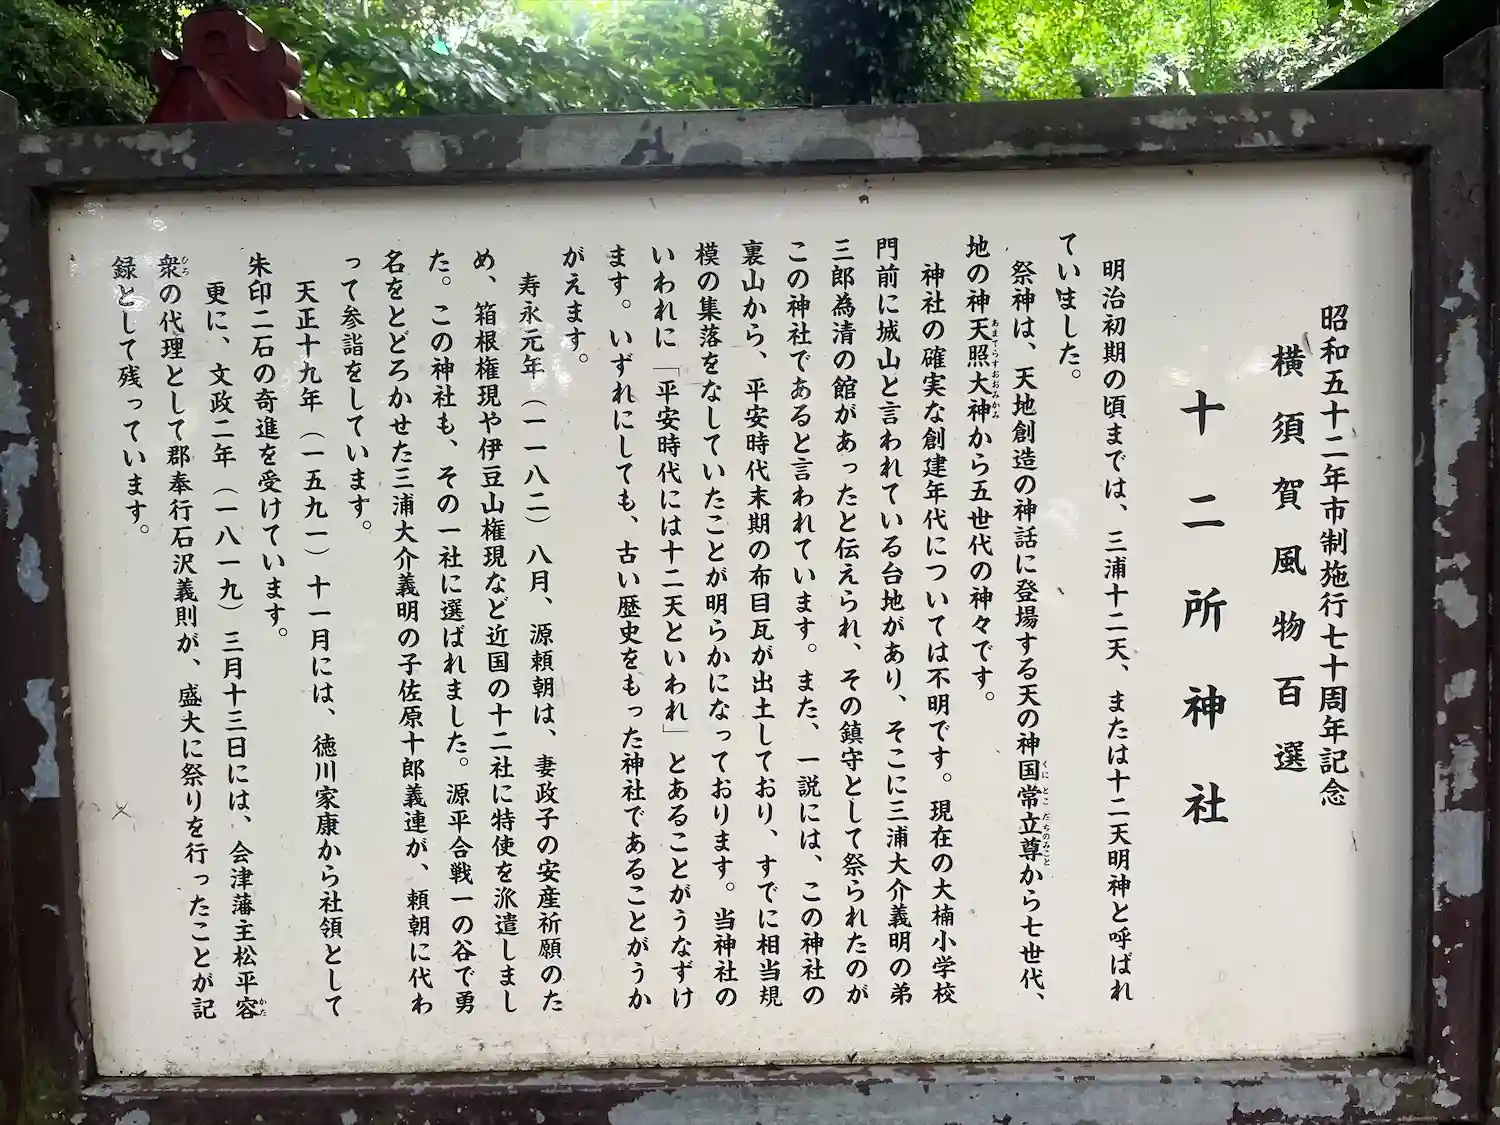 昭和五十二年市制施行七十周年記念
横須賀風物百選
十二所神社
明治初期の頃までは、三浦十二天、または十二天明神と呼ばれ
ていました。
祭神は、天地創造の神話に登場する天の神国常立尊から七世代、
くにとこだちのみこと
地の神天照大神から五世代の神々です。
あまてらすおおみかみ
神社の確実な創建年代については不明です。現在の大楠小学校
門前に城山と言われている台地があり、そこに三浦大介義明の弟
三郎為清の館があったと伝えられ、その鎮守として祭られたのが
この神社であると言われています。また、一説には、この神社の
裏山から、平安時代末期の布目瓦が出土しており、すでに相当規
模の集落をなしていたことが明らかになっております。当神社の
いわれに「平安時代には十二天といわれ」とあることがうなずけ
ます。いずれにしても、古い歴史をもった神社であることがうか
がえます。
寿永元年（一一八二）八月、源頼朝は、妻政子の安産祈願のた
め、箱根権現や伊豆山権現など近国の十二社に特使を派遣しまし
た。この神社も、その一社に選ばれました。源平合戦一の谷で勇
名をとどろかせた三浦大介義明の子佐原十郎義連が、頼朝に代わ
って参詣をしています。
天正十九年（一五九一）十一月には、徳川家康から社領として
朱印二石の奇進を受けています。
更に、文政二年（一八一九）三月十三日には、会津藩主松平容
かた
衆の代理として郡奉行石沢義則が、盛大に祭りを行ったことが記
ひろ
録として残っています。